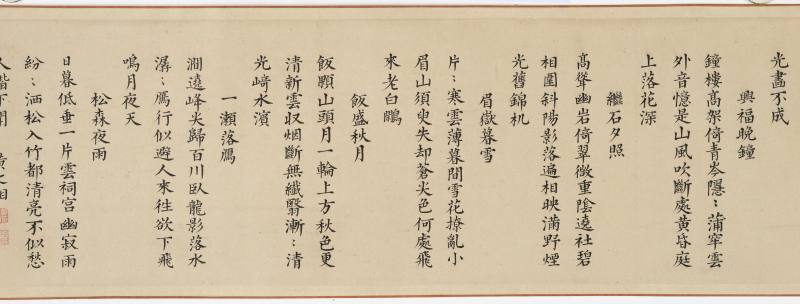 光盡不成
興福晚鐘
鐘樓高架倚青岑隱〻蒲牢雲
外音憶是山風吹斷處黃昏庭
上落花深
繼石夕照
高聳幽岩倚翠微重陰遠社碧
相圍斜陽影落遍相映滿野煙
光舊錦机
眉嶽暮雪
片〻寒雲薄暮間雪花撩亂小
眉山須臾失却蒼尖色何處飛
來老白鷴
飯盛秋月
飯顆山頭月一輪上方秋色更
清新雲収烟斷無纖翳漸〻清
光﨑水濱
一瀨落鴈
澗遶峰尖歸百川臥龍影落水
潺〻鴈行似避人來往欲下飛
鳴月夜天
松森夜雨
日暮低垂一片雲祠宮幽寂雨
紛〻洒松入竹都清亮不似愁
人階下聞